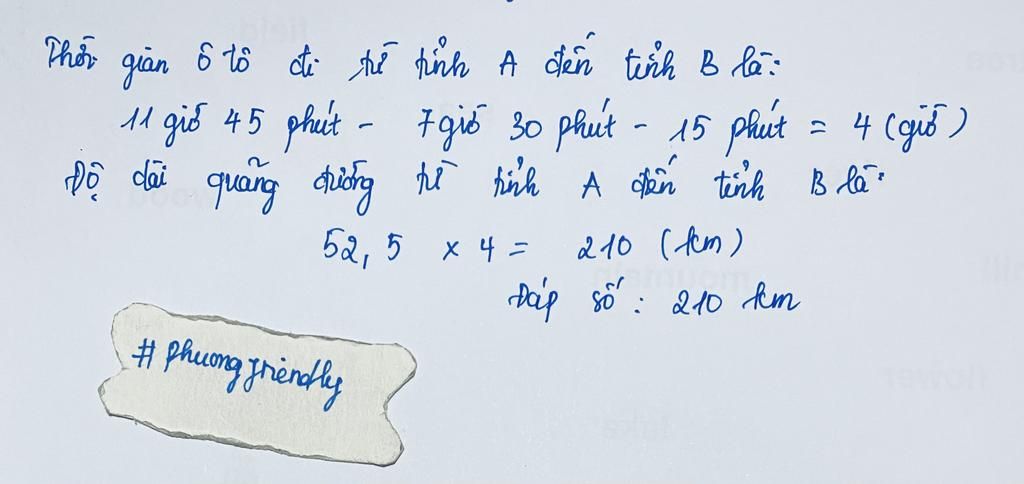 Thời gian ô tô đi từ tỉnh A đến tỉnh B là:
11 giờ 45 phút - 7 giờ 30 phút - 15 phút = 4 (giờ)
Độ dài quãng đường từ tỉnh A đến tỉnh B là:
52,5 x 4 = 210 (km)
Đáp số: 210 km
# phuongfriendly